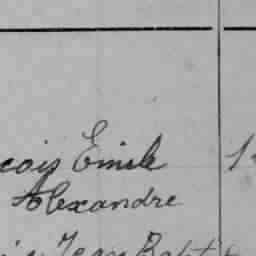 çois Emile 1
Alexandre
Jean Bapt